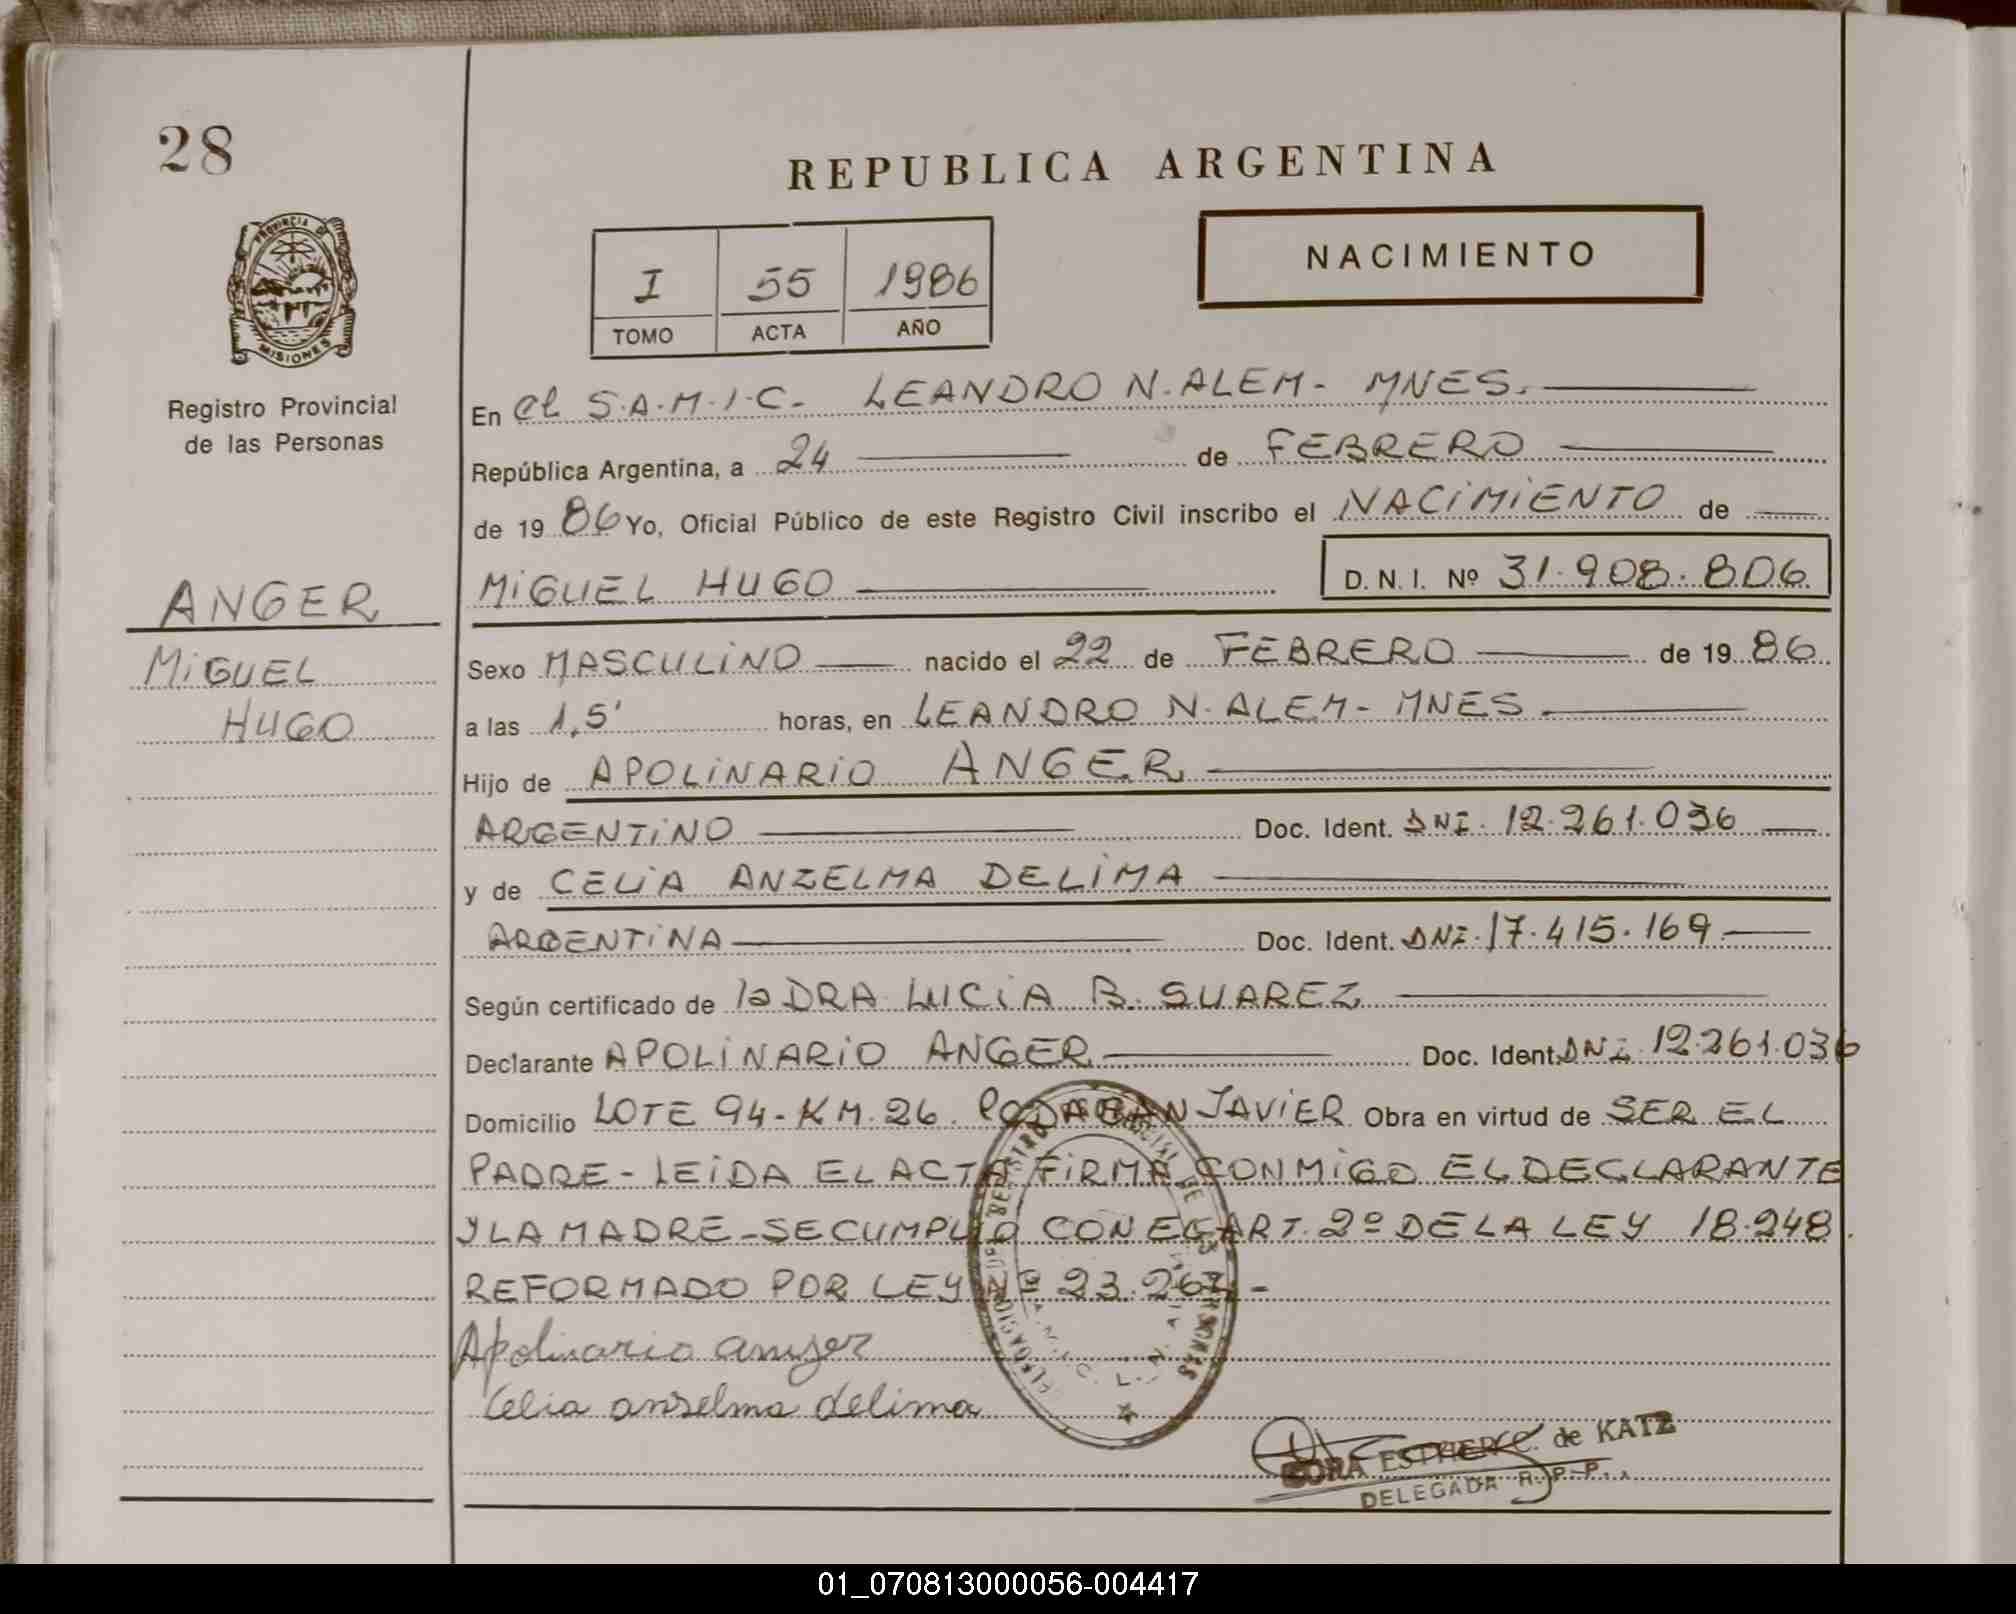 28
REPUBLICA ARGENTINA
PROVINCIA DE
MISIONES
Registro Provincial
de las Personas
I 55 1986
TOMO ACTA AÑO
NACIMIENTO
En el S.A.M.I.C. LEANDRO N. ALEM - MNES.
República Argentina, a 24 de FEBRERO
de 1986 Yo, Oficial Público de este Registro Civil inscribo el NACIMIENTO de
ANGER
MIGUEL
HUGO
MIGUEL HUGO D.N.I. Nº 31.908.806
Sexo MASCULINO nacido el 22 de FEBRERO de 1986
a las 1,5' horas, en LEANDRO N. ALEM - MNES
Hijo de APOLINARIO ANGER
ARGENTINO Doc. Ident. DNI. 12.261.036
y de CELIA ANZELMA DELIMA
ARGENTINA Doc. Ident. DNI. 17.415.169
Según certificado de la DRA LUCIA B. SUAREZ
Declarante APOLINARIO ANGER Doc. Ident. DNI. 12.261.036
Domicilio LOTE 94 - KM. 26. SAN JAVIER Obra en virtud de SER EL
PADRE - LEIDA EL ACTA FIRMA CONMIGO EL DECLARANTE
Y LA MADRE - SE CUMPLIO CON EL ART. 2º DE LA LEY 18.248.
REFORMADO POR LEY Nº 23.264 -
Apolinario anger
Celia anselma delima
ESTHER C. de KATZ
DELEGADA R.P.P.
01_070813000056-004417